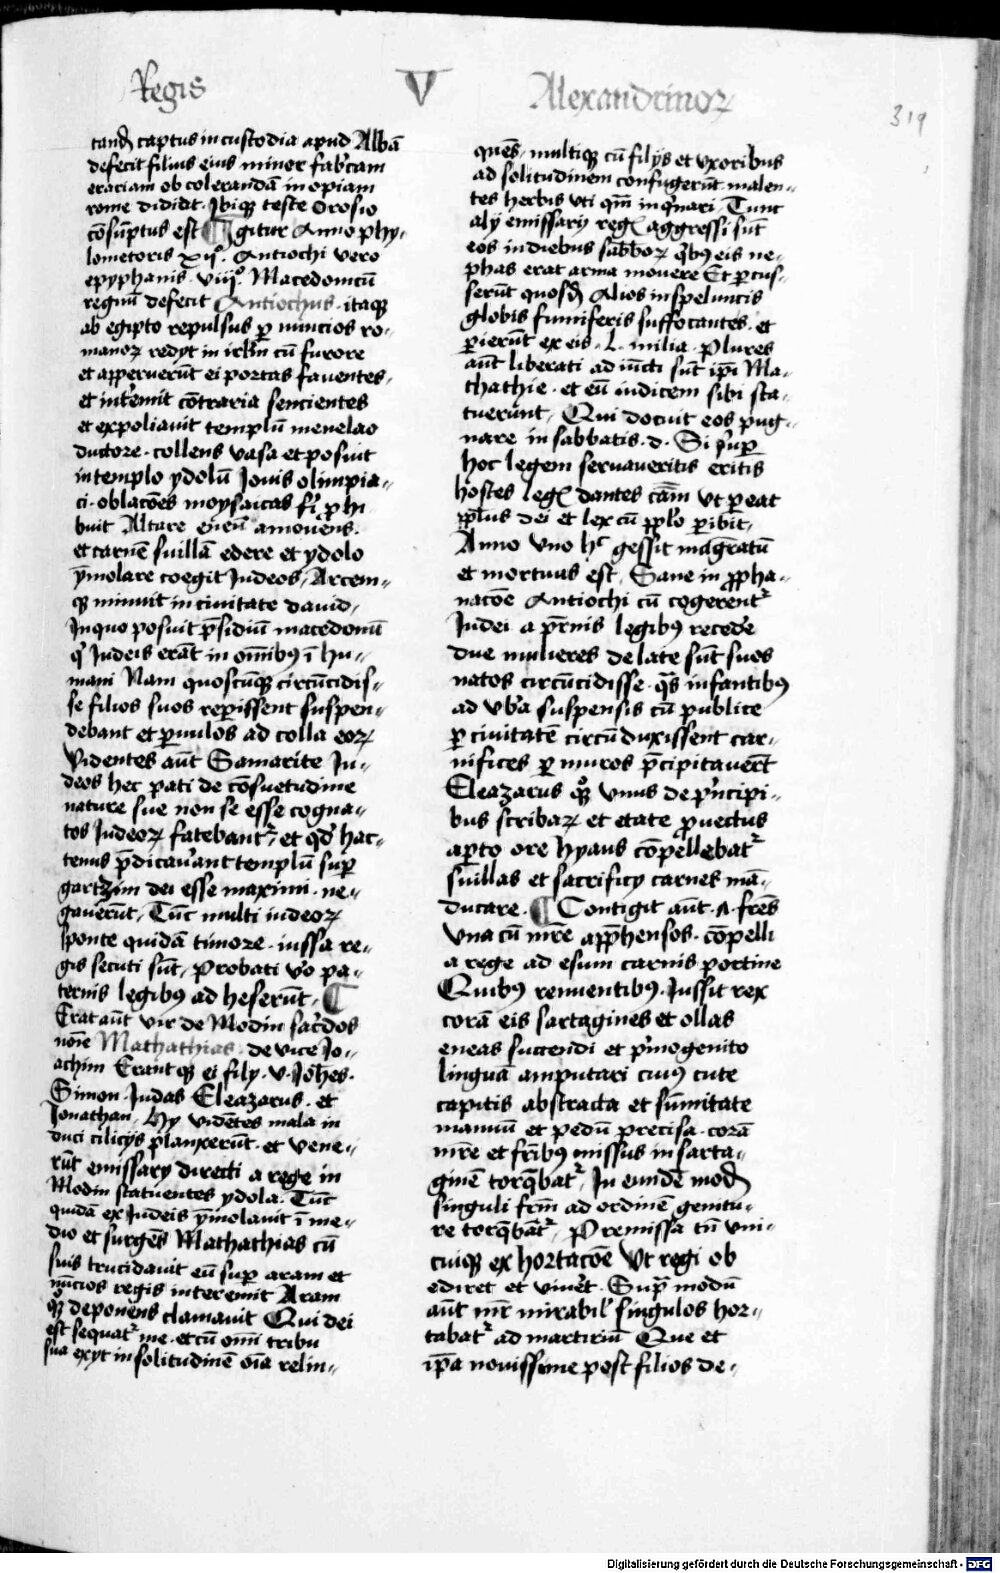 Regis V Alexandrinoꝝ
319
tand̄ captus in custodia apud Albā
defecit filius eius minor fab'cam
erariam ob colerandā in opiam
rome dididit. Ibiqꝫ teste Orosio
cōsūptus est ¶ Igitur Anno phy-
lometoris xiꝰ. Antiochi vero
epyphanis. viijº. Macedonicū
regnū defecit Antiochus. itaqꝫ
ab egipto repulsus ꝑ nuncios ro-
manoꝝ redyt in irl'm cū furore
et apperuerūt ei portas fauentes.
et int'emit cōtraria sencientes
et expoliauit templū menelao
ductore. tollens vasa et posuit
in templo ydolū Iouis olimpia-
ci. oblacōes moysaicas fi'i ꝓhi
buit Altare eneū amouens.
et carnē suillā edere et ydolo
ȳmolare coegit Iudeos, Arcem-
qꝫ miniuit in ciuitate dauid,
In quo posuit p̄sidiū macedonū
q' Iudeis erāt in om̄ibꝰ ī hu-
mani Nam quoscūqꝫ circūcidis-
se filios suos reꝑissent suspen-
debant et ꝑuulos ad colla eoꝝ
Videntes aūt Samarite Iu-
deos hec pati de cōsuetudine
nature sue non se esse cogna-
tos Iudeoꝝ fatebantꝰ, et qd' hac-
tenus p̄dicau'ant templū suꝑ
gartzim dei esse maximi. ne-
gauerūt, Tūc multi iudeoꝝ
sponte quidā timore. iussa re-
gis secuti sūt, Probati v'o pa-
ternis legibꝰ ad heserūt, ¶
Erat aūt vir de Modin sac'dos
noīe Mathathias. de vice Io-
achim Erant qꝫ ei filij. v. Ioh̄es.
Simon. Iudas Eleazarus. et
Ionathan, Hy vidētes mala in
duci cilicijs planxerūt. et vene-
rūt emissarij directi a rege in
Modin statuentes ydola. Tūc
quidā ex Iudeis ȳmolauit ī me-
dio et surgēs Mathathias cū
suis trucidauit eū suꝑ aram et
nūcios regis interemit Aram
qꝫ deponens clamauit Qui dei
est sequatꝰ me. et cū om̄i tribu
sua exyt in solitudinē oīa relin-
quēs. multiqꝫ cū filijs et vxoribus
ad solitudinem confugerūt. malen-
tes herbis vti qm̄ inq'nari. Tunc
alij emissarij regꝭ aggressi sūt
eos in diebus sabboꝝ q'bꝰ eis ne-
phas erat arma mouere Et ꝑcus-
serūt quosd̄ Alios in speluncis
globis fumiferis suffocantes. et
ꝑierūt ex eis. L. milia. Plures
aūt liberati ad iūcti sūt ip̄i Ma-
thathie. et eū iudicem sibi sta-
tuerūnt, Qui docuit eos pug-
nare in sabbatis. d. Si suꝑ
hoc legem seruaueritis eritis
hostes legꝭ dantes cām vt ꝑeat
ppl'us dei et lex cū ppl'o ꝑibit,
Anno vno hꝰ gessit maḡratū
et mortuus est, Sane in ꝓpha-
nacōe Antiochi cū cogerentꝰ
Iudei a p̄rnis legibꝰ recede'
due mulieres delate sūt suos
natos circūcidisse. q̄s infantibꝰ
ad vb'a suspensis cū publice
ꝑ ciuitatē circū duxissent car-
nifices ꝑ muros p̄cipitauer̄t
Eleazarus qꝫ vnus de p'ncipi-
bus scribaꝝ et etate ꝓuectus
aꝑto ore hyans cōpellebatꝰ
suillas et sacrificij carnes mā-
ducare. ¶ Contigit aūt. A. fr̄es
vna cū m̄re app̄hensos. cōpelli
a rege ad esum carnis porcine
Quibꝰ renuentibꝰ. Iussit rex
corā eis sartagines et ollas
eneas succendi et p'mogenito
linguā amputari cuiꝰ cute
capitis abstracta et sūmitate
manuū et pedū precisa. corā
m̄re et fr̄ibꝰ missus in sarta-
ginē torq̄batꝰ, In eundē mod̄
singuli fr̄m ad ordinē genitu-
re torq̄bātꝰ, Premissa tn̄ vni-
cuiqꝫ ex hortacōe Vt regi ob
ediret et viuer̄t. Supͣ modū
aūt m̄r mirabil' singulos hor-
tabatꝰ ad martiriū Que et
ip̄a nouissime post filios de-
Digitalisierung gefördert durch die Deutsche Forschungsgemeinschaft - DFG